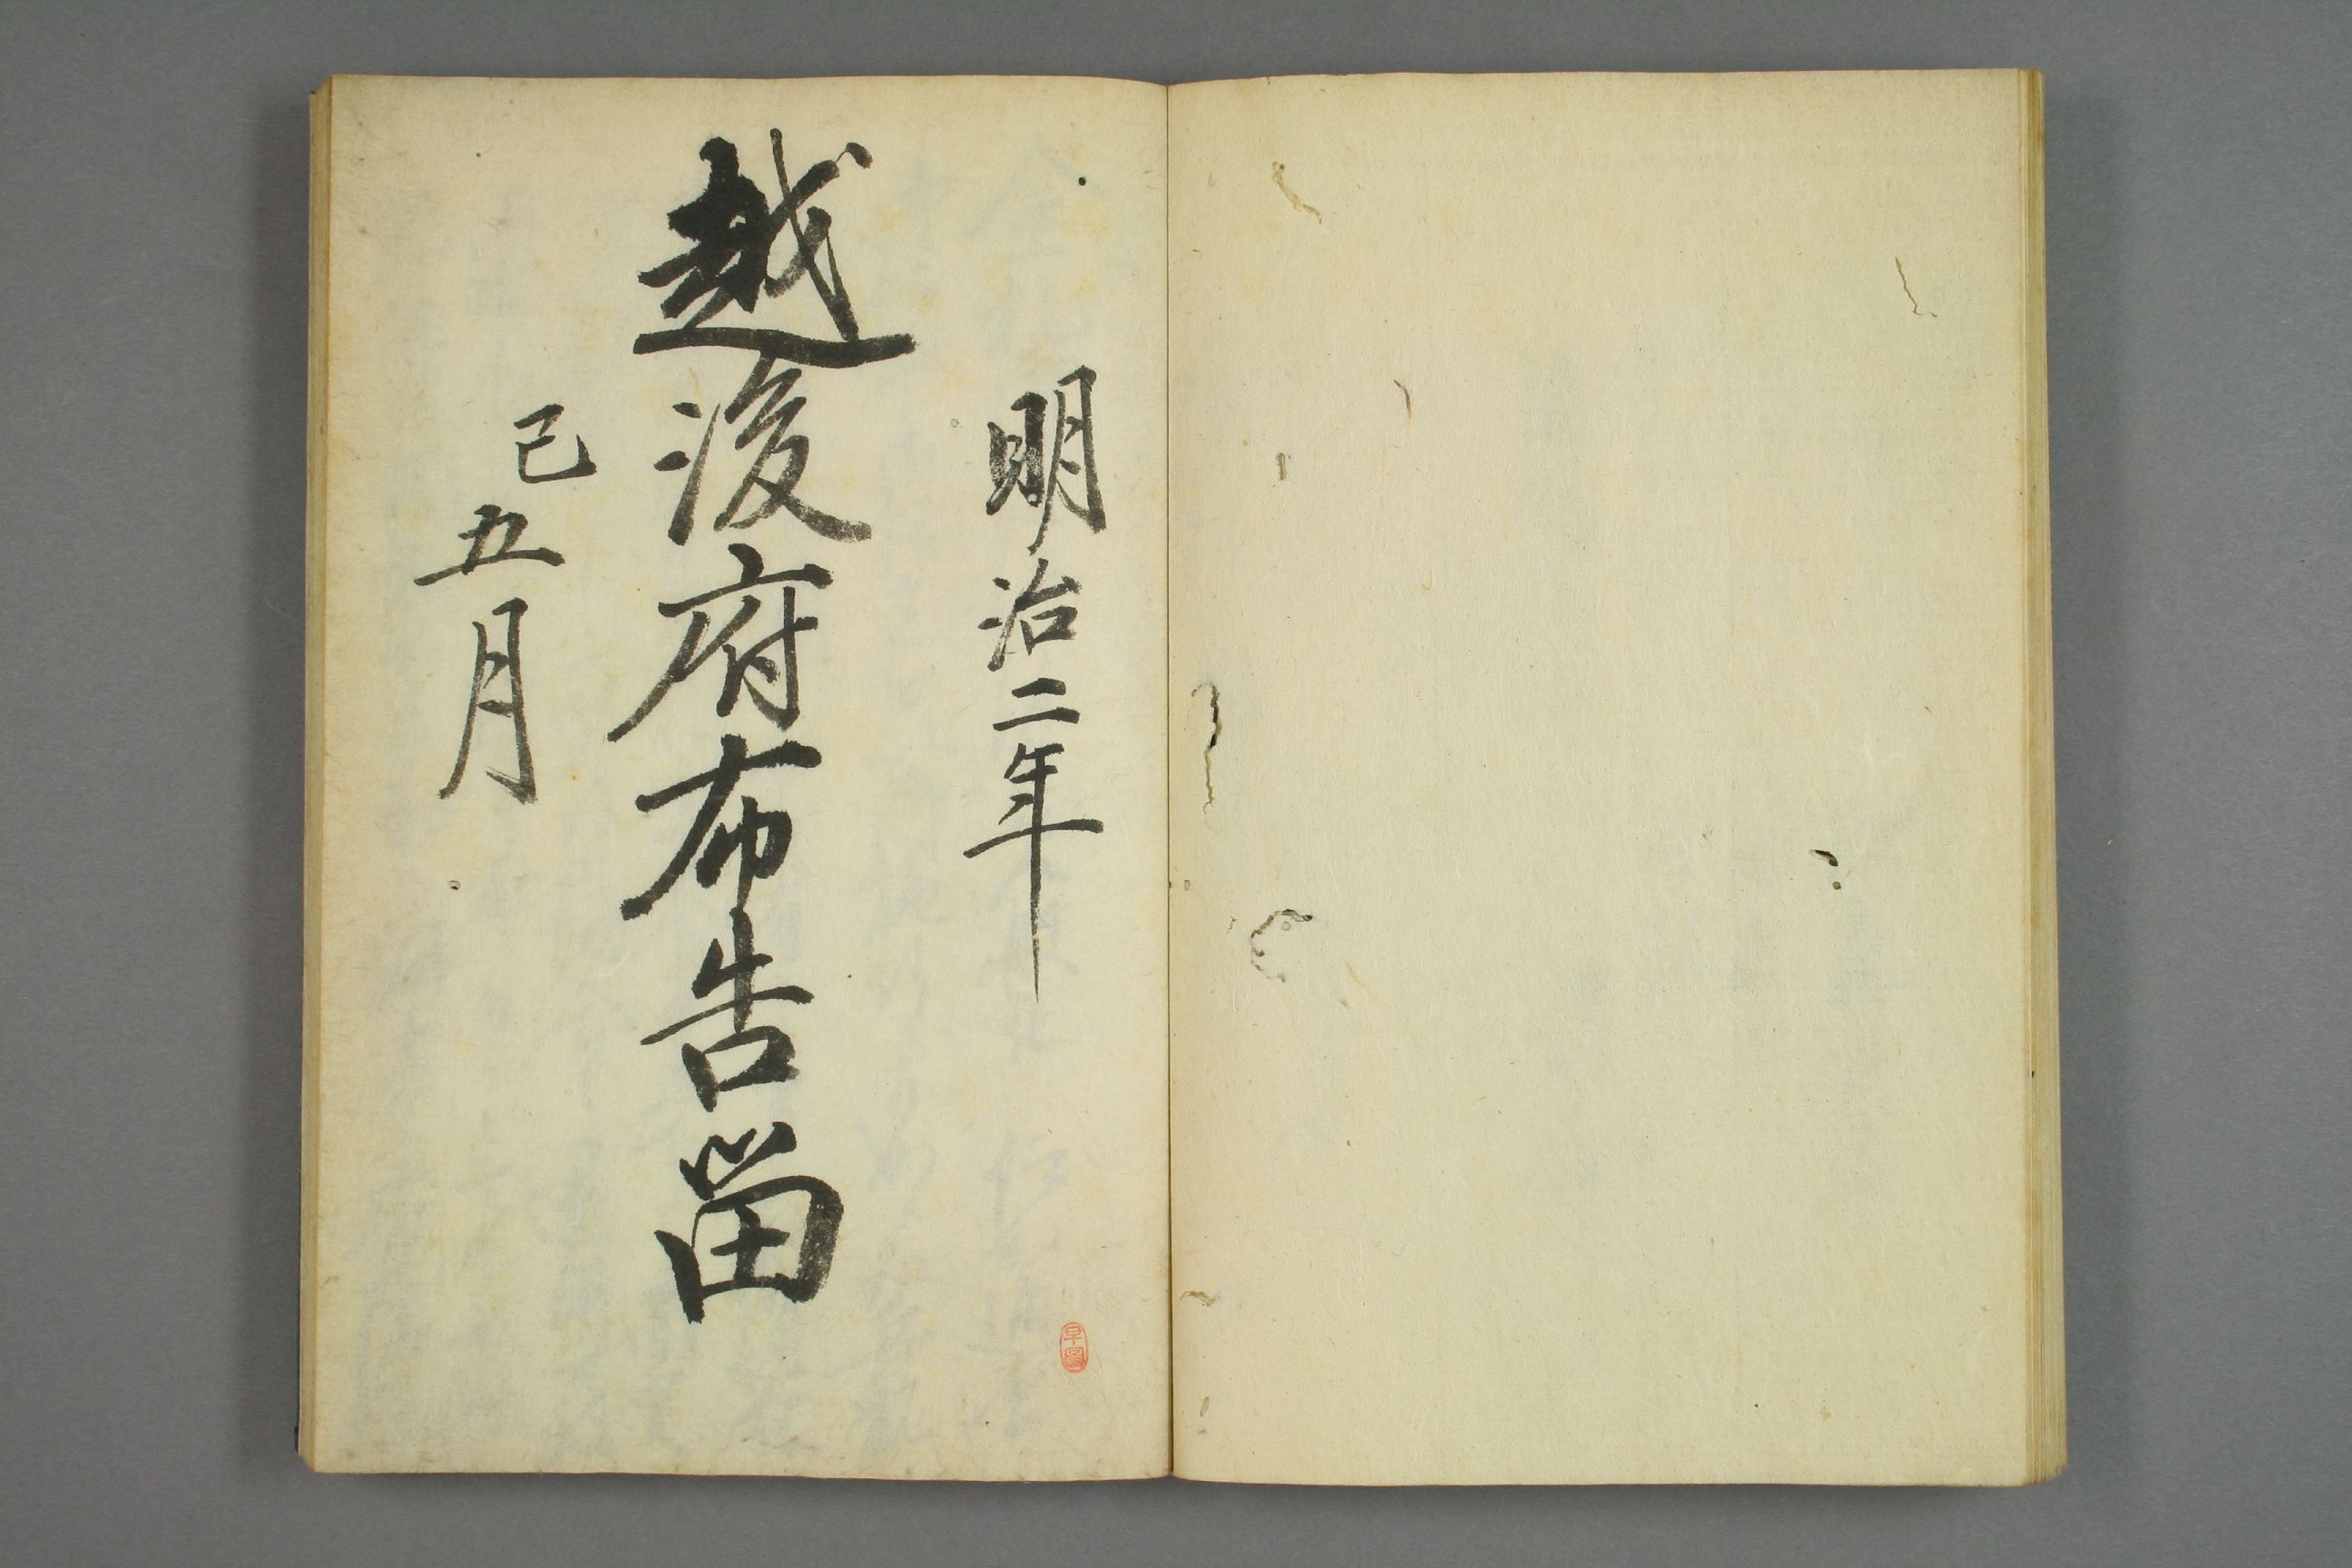 明治二年
越後府布告留
巳五月
早圖